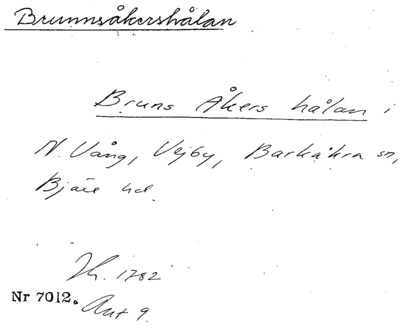 Brunnsåkershålan
Bruns Åkers hålan i
N. Vång, Vejby, Barkåkra sn,
Bjäre hd.
Jh. 1782
Nr 7012.
Akt 9.